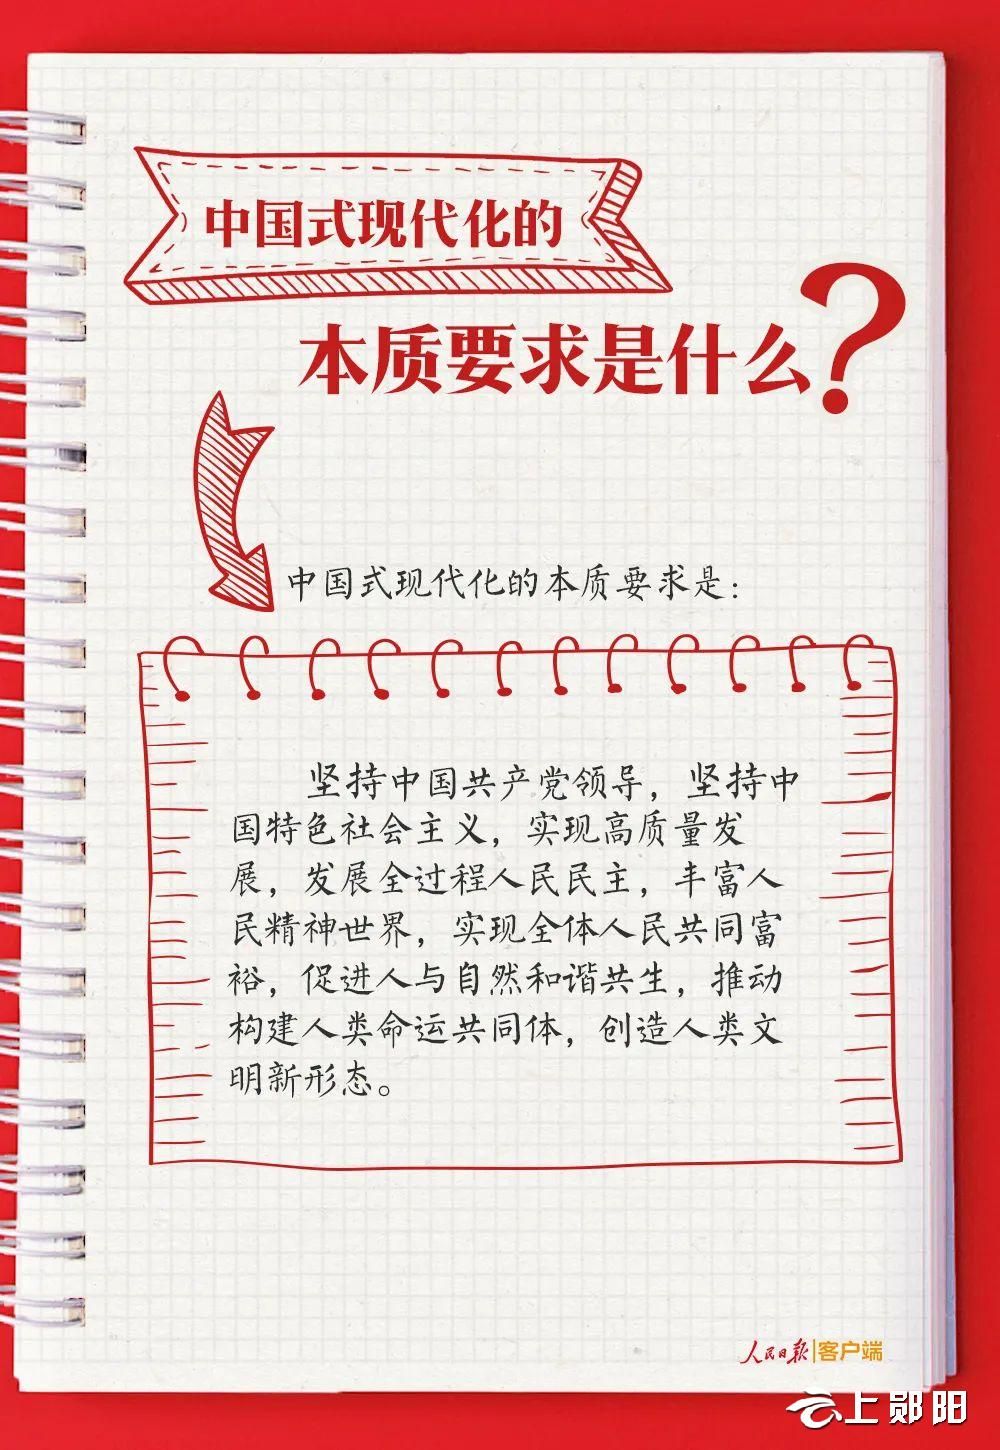 中国式现代化的
本质要求是什么？
中国式现代化的本质要求是：
坚持中国共产党领导，坚持中
国特色社会主义，实现高质量发
展，发展全过程人民民主，丰富人
民精神世界，实现全体人民共同富
裕，促进人与自然和谐共生，推动
构建人类命运共同体，创造人类文
明新形态。
人民日报|客户端
云上郧阳